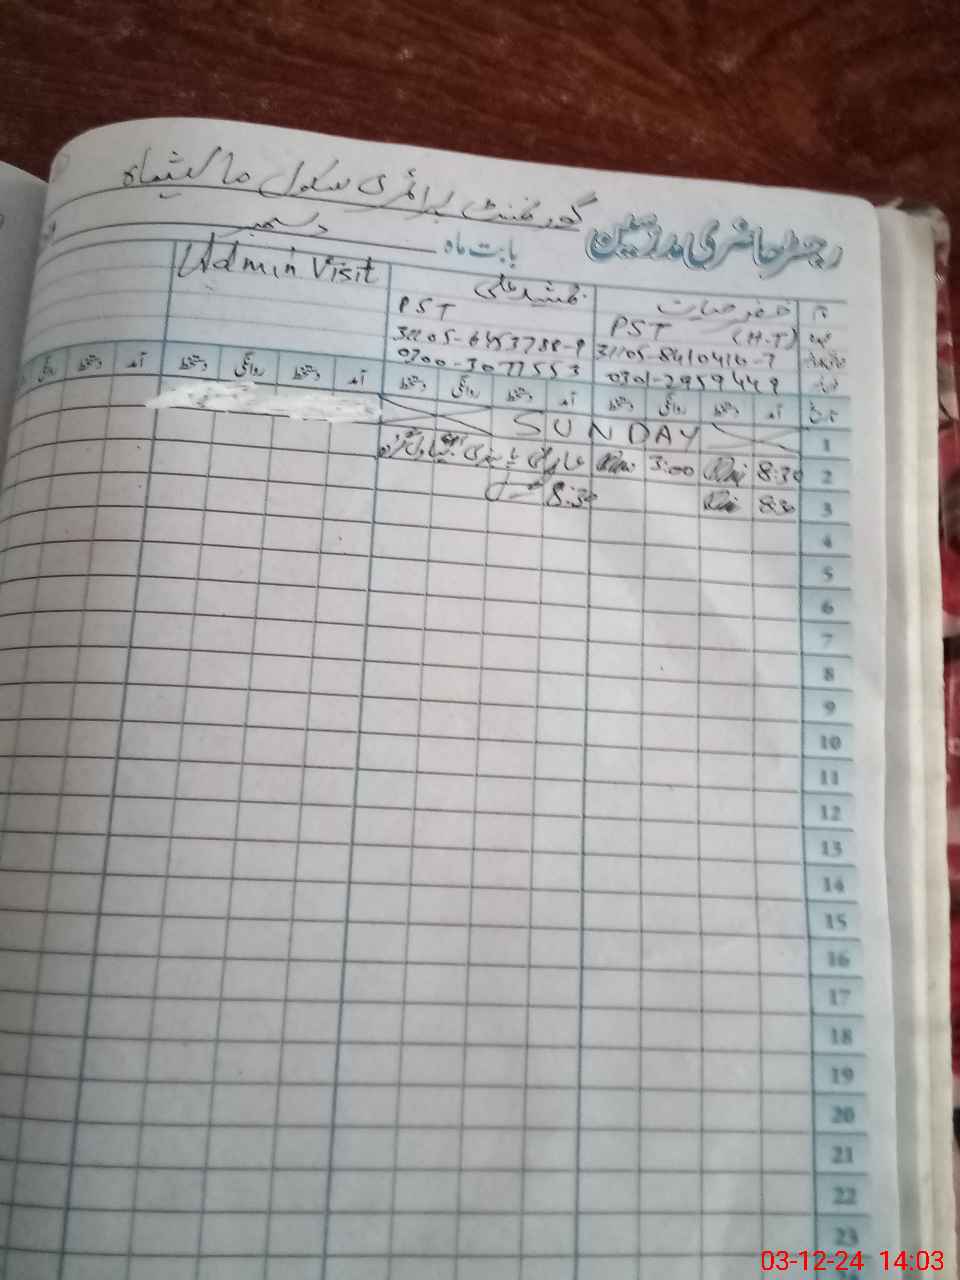 گورنمنٹ پرائمری سکول
رجسٹر حاضری مدرسین
بابت ماہ دسمبر
نام خضر حیات
جمشید علی
Admin Visit
عہدہ PST (H.T)
PST
شناختی 31105-8410416-7
0301-2959449
0300-3077553
تاریخ آمد دستخط روانگی دستخط آمد دستخط روانگی دستخط آمد دستخط روانگی دستخط آمد دستخط روانگی
1 SUNDAY
2 8:30 3:00
3 8:30 8:30
4
5
6
7
8
9
10
11
12
13
14
15
16
17
18
19
20
21
22
23
03-12-24 14:03